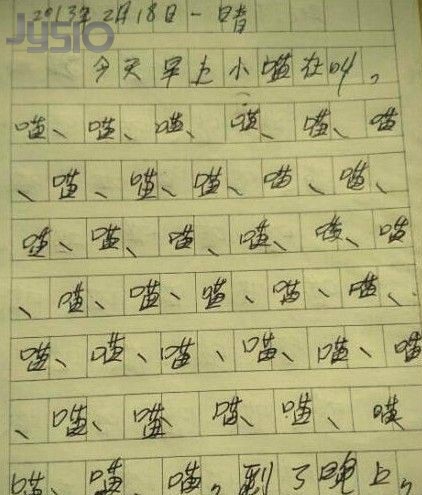 2013年2月18日 一 晴
Jysio
今天早上小喵在叫，
喵、喵、喵、喵、喵、喵
、喵、喵、喵、喵、喵、
喵、喵、喵、喵、喵、喵
、喵、喵、喵、喵、喵、
喵、喵、喵、喵、喵、喵
、喵、喵 喵、喵、喵
喵、喵、喵，到了晚上，